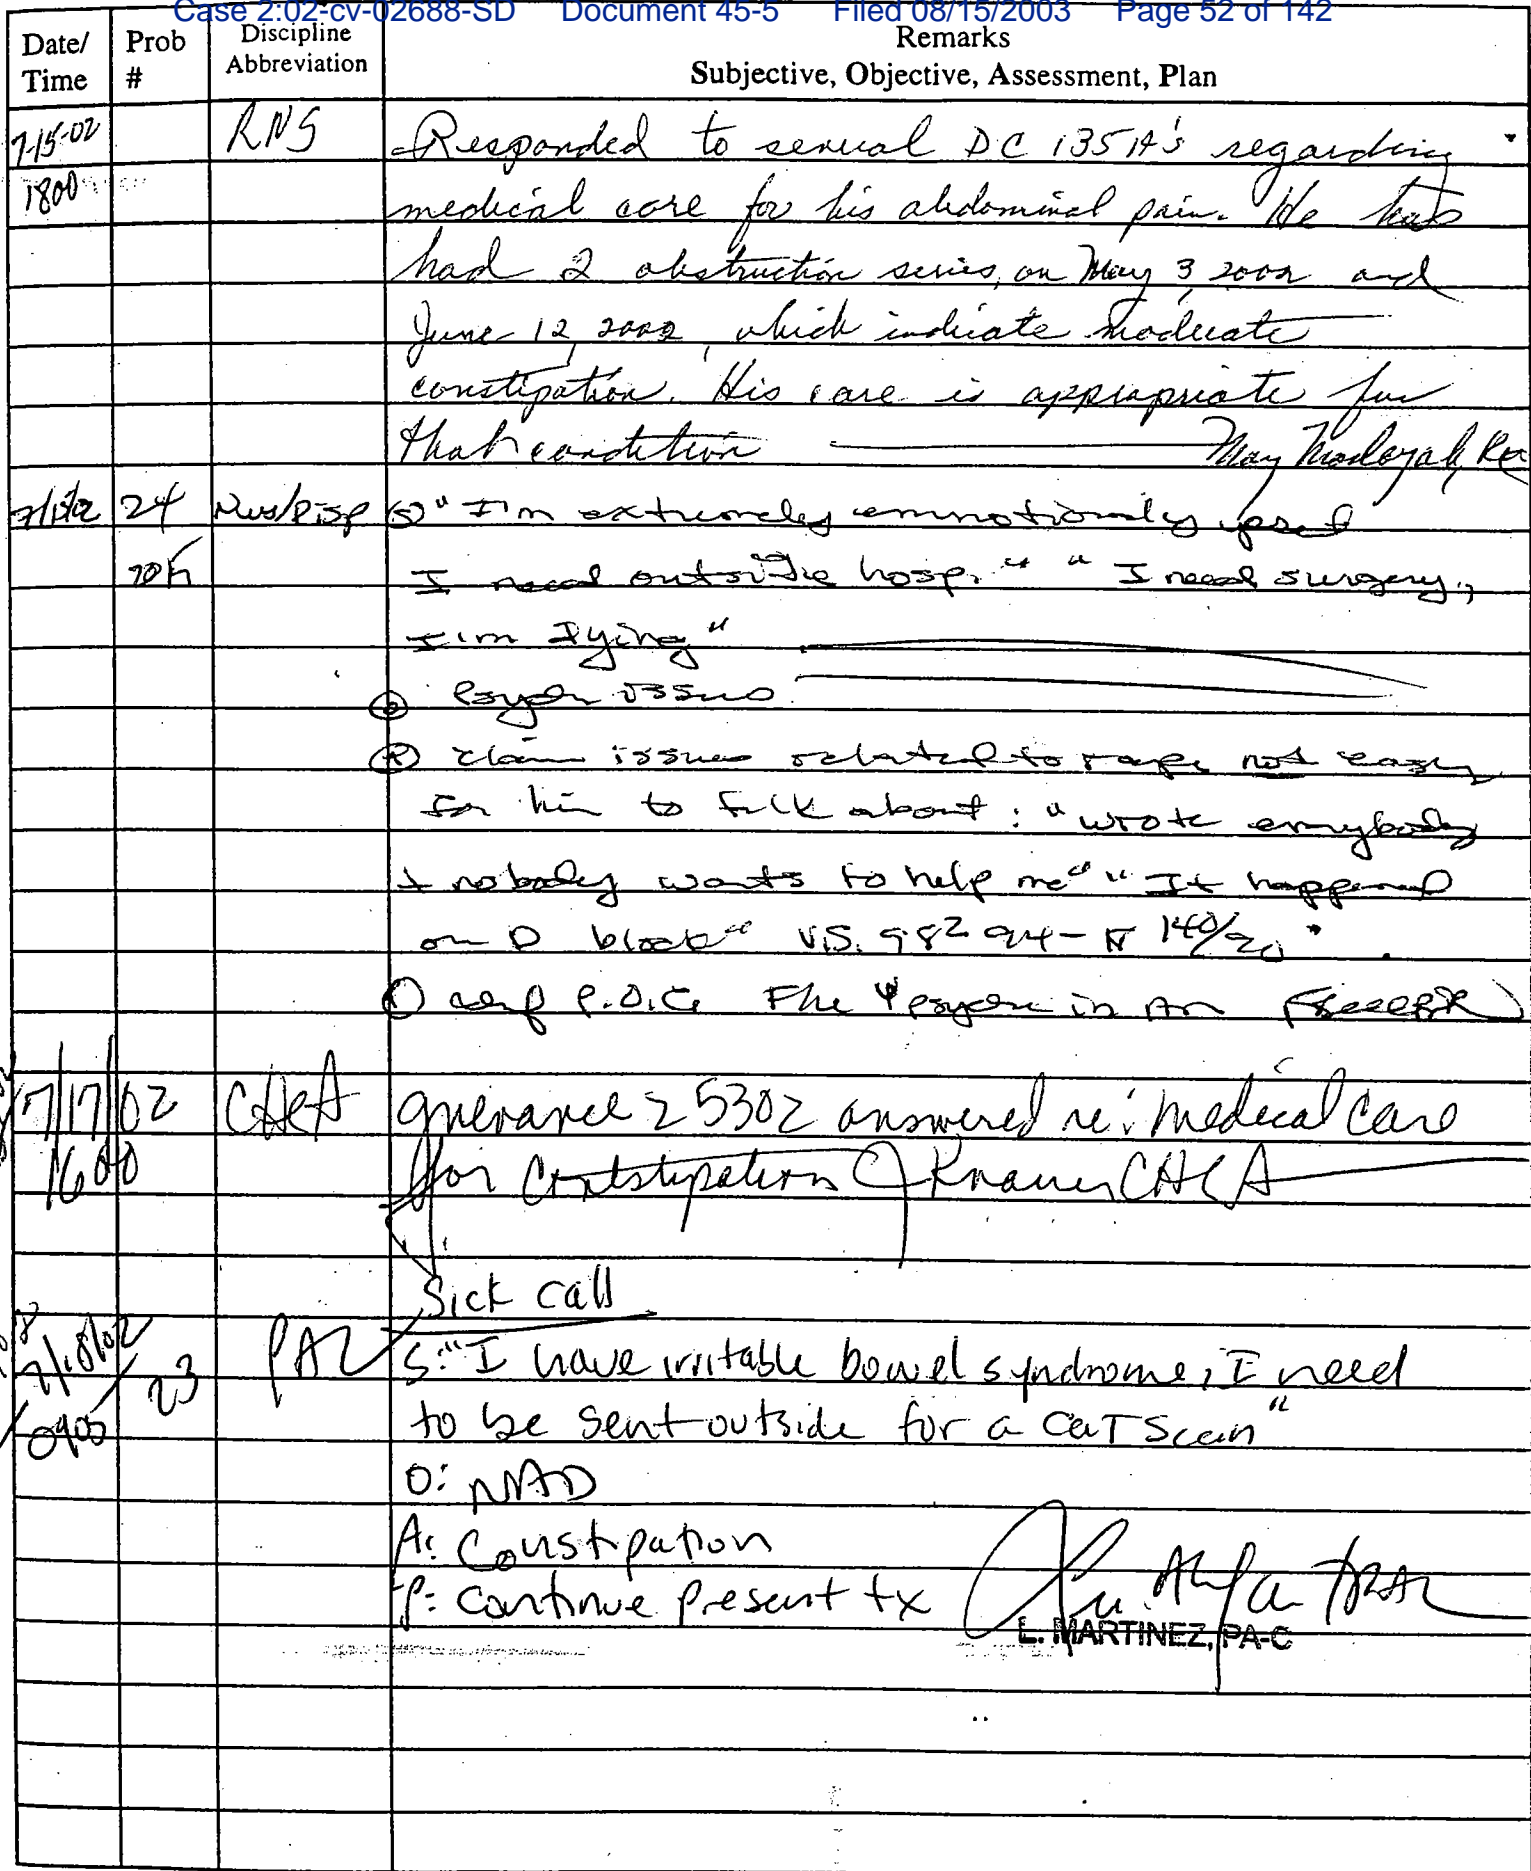 Case 2:02-cv-02688-SD Document 45-5 Filed 08/15/2003 Page 52 of 142
Date/ Time
Prob #
Discipline Abbreviation
Remarks
Subjective, Objective, Assessment, Plan
7-15-02 RNS Responded to several DC 135A's regarding
1800 medical care for his abdominal pain. He has
had 2 obstruction series, on May 3, 2002 and
June 12, 2002, which indicate moderate
constipation. His care is appropriate for
that condition
24 (S) " I'm extremely emmotionaly upset
I need outside hosp. " " I need surgery,
I'm dying "
Psych issues
claim issues related to rape not easy
for him to talk about : " wrote everybody
+ nobody wants to help me" " It happened
on D block" V.S. 98² 94- 140/90
P.O.C. psych in Am
7/17/02 CHCA grievance 25302 answered re: medical care
1600 for Contstipation J Knauer CHCA
Sick call
7/18/02 23 S: "I have irritable bowel syndrome, I need
0905 to be sent outside for a CaT Scan"
O: NAD
A: Constipation
P: Continue present tx
L. MARTINEZ, PA-C